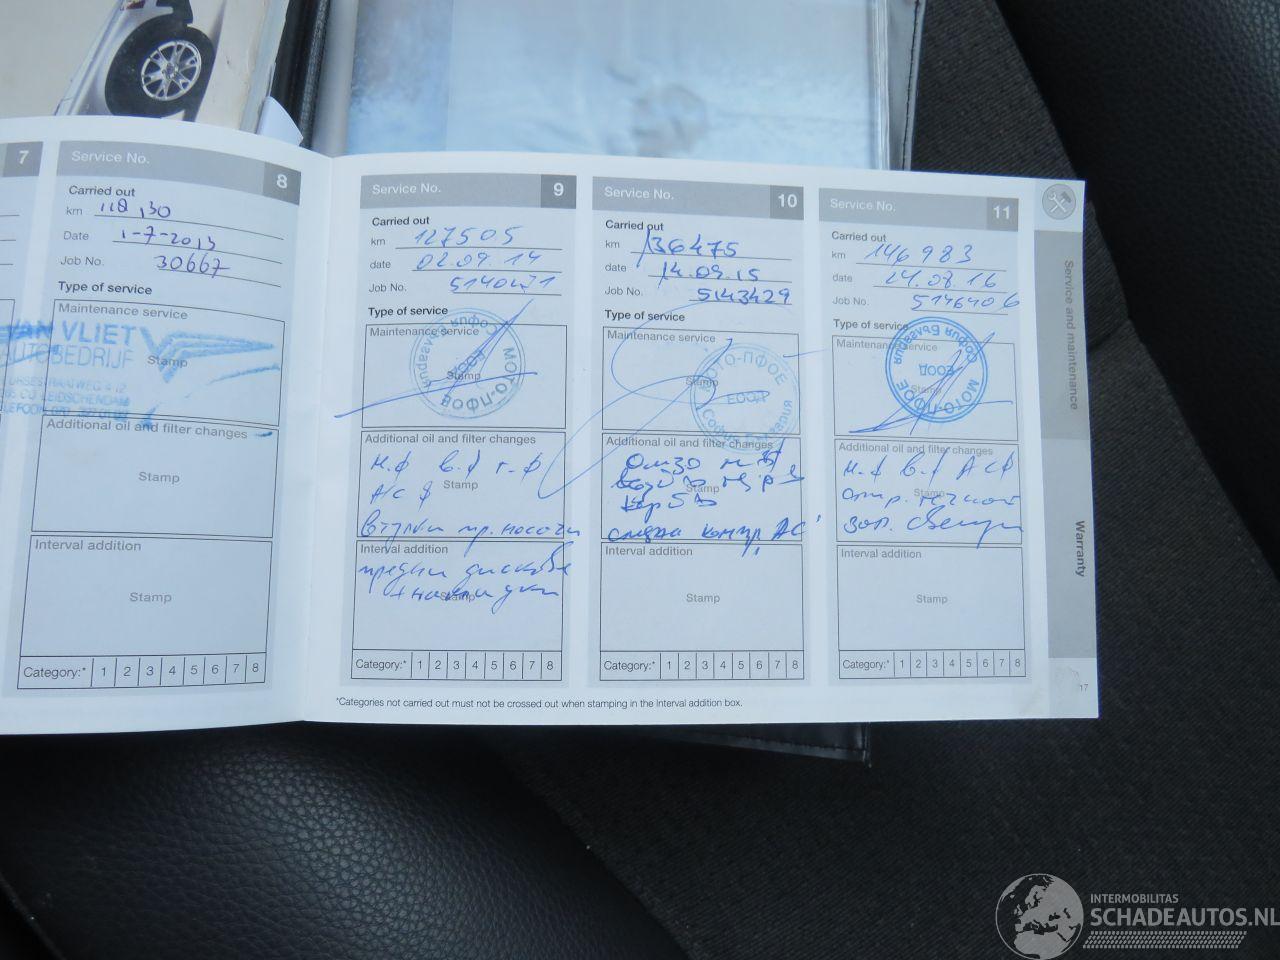 7
Service No. 8
Carried out
km 118,130
Date 1-7-2013
Job No. 30667
Type of service
Maintenance service
VAN VLIET
AUTOBEDRIJF
Stamp
LEIDSCHENDAM
Additional oil and filter changes
Stamp
Interval addition
Stamp
Category:* 1 2 3 4 5 6 7 8
Service No. 9
Carried out
km 127505
date 02.09.14
Job No.
Type of service
Maintenance service
София България
ЕООД
МОТО-ПФОЕ
Stamp
Additional oil and filter changes
м.ф в.ф г.ф
Stamp
А/С ф
втулки пр. носачи
Interval addition
предни дискове
+ накладки
Stamp
Category:* 1 2 3 4 5 6 7 8
Service No. 10
Carried out
km 136475
date 14.09.15
Job No. 5143429
Type of service
Maintenance service
МОТО-ПФОЕ
Stamp
ЕООД
София България
Additional oil and filter changes
Stamp
смяна компр. АС
Interval addition
Stamp
Category:* 1 2 3 4 5 6 7 8
Service No. 11
Carried out
km 146983
date 24.08.16
Job No. 5146406
Type of service
Maintenance service
София България
ЕООД
Stamp
МОТО-ПФОЕ
Additional oil and filter changes
м.ф в.ф АСФ
Stamp
Interval addition
Stamp
Category:* 1 2 3 4 5 6 7 8
*Categories not carried out must not be crossed out when stamping in the Interval addition box.
Service and maintenance
Warranty
17
INTERMOBILITAS
SCHADEAUTOS.NL